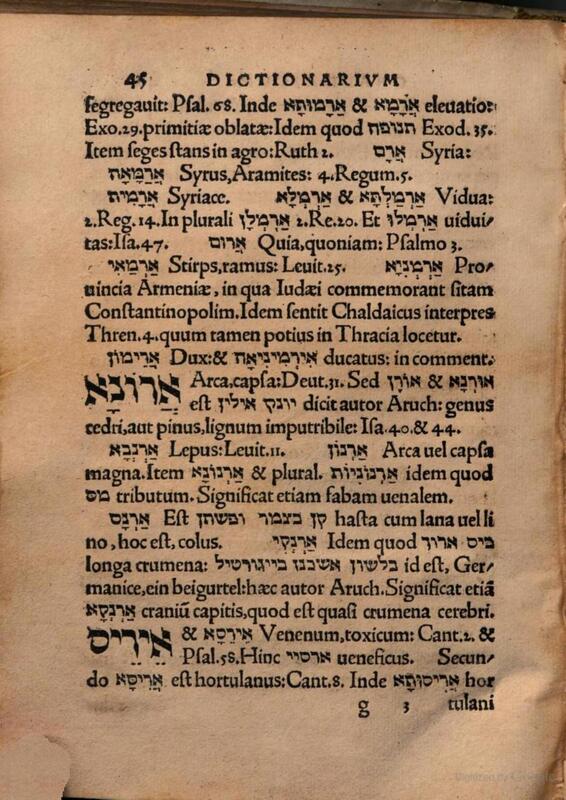 45 DICTIONARIVM
segregauit: Psal. 68. Inde אֲרָמָא & אֲרָמוּתָא eleuatio:
Exo.29.primitiæ oblatæ:Idem quod תנופה Exod. 35.
Item seges stans in agro:Ruth 2. אֲרָם Syria:
אֲרַמָאָה Syrus,Aramites: 4.Regum.5.
אֲרָמִית Syriace. אַרְמְלָא & אַרְמַלְתָּא Vidua:
2.Reg.14.In plurali אַרְמְלָן 2.Re.20. Et אַרְמְלוּ uidui/
tas:Isa.47. אֲרוּם Quia,quoniam: Psalmo 3.
אַרְמַאי Stirps,ramus: Leuit.25. אַרְמְנְיָא Pro/
uincia Armeniæ, in qua Iudæi commemorant sitam
Constantinopolim. Idem sentit Chaldaicus interpres
Thren.4.quum tamen potius in Thracia locetur.
אֲרִימוֹן Dux:& אִירְמִינִיאָה ducatus: in comment.
אֲרוֹנָא Arca,capsa:Deut.31. Sed אוֹרֶן & אוּרְנָא
est יונקי אילין dicit autor Aruch: genus
cedri,aut pinus,lignum imputribile: Isa.40.& 44.
אַרְנְבָא Lepus:Leuit.11. אַרְנוֹן Arca uel capsa
magna.Item אַרְנוֹנָא & plural. אַרְנוֹנִיּוֹת idem quod
מס tributum. Significat etiam fabam uenalem.
אַרְנָס Est קן בצמר ופשתן hasta cum lana uel li
no, hoc est, colus. אַרְנְקִי Idem quod כיס ארוך
longa crumena: בלשון אשכנז בייגורטיל id est, Ger/
manice,ein beigurtel:hæc autor Aruch.Significat etiã
אַרְנְקָא craniũ capitis,quod est quasi crumena cerebri.
אִירִיס & אֵירְסָא Venenum,toxicum: Cant.2. &
Psal.58.Hinc ארסיי ueneficus. Secun/
do אֲרִיסָא est hortulanus:Cant.8. Inde אֲרִיסוּתָא hor
g 3 tulani